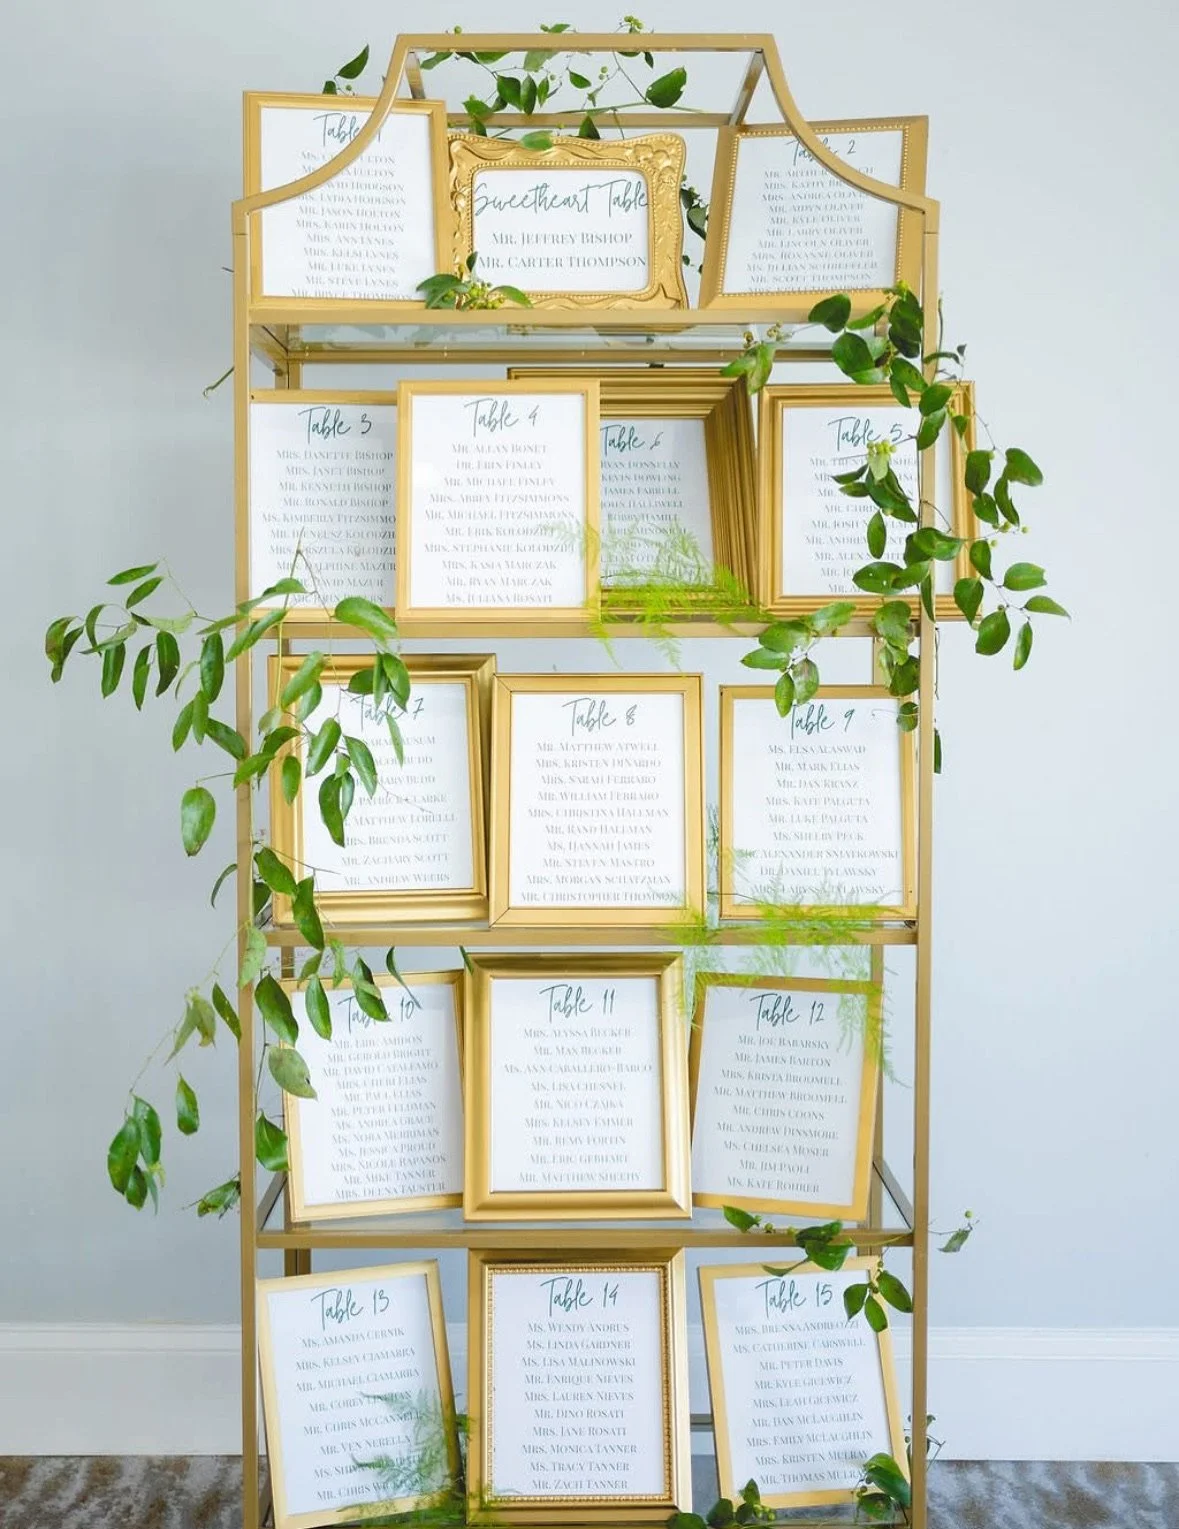 Table 1
Ms.
Fulton
Fulton
David Hodgson
Mrs. Lydia Hodgson
Mr. Jason Holton
Mrs. Karin Holton
Mrs. Ann Lynes
Mrs. Kelsi Lynes
Mr. Luke Lynes
Mr. Steve Lynes
Mr. Bryce Thompson
Sweetheart Table
Mr. Jeffrey Bishop
Mr. Carter Thompson
Table 2
Mr. Arthur
Mrs. Kathy
Mrs. Andrea Oliver
Mr. Aidyn Oliver
Mr. Kyle Oliver
Mr. Larry Oliver
Mr. Lincoln Oliver
Mrs. Roxanne Oliver
Ms. Jillian Schieffler
Mr. Scott Thompson
Table 3
Mrs. Danette Bishop
Mrs. Janet Bishop
Mr. Kenneth Bishop
Mr. Ronald Bishop
Ms. Kimberly Fitzsimmo
Mr. Ireneusz Kolodzie
Mrs. Urszula Kolodzie
Mrs. Delphine Mazur
Mr. David Mazur
Mr. John
Table 4
Mr. Allan Bonet
Dr. Erin Finley
Mr. Michael Finley
Mrs. Abbey Fitzsimmons
Mr. Michael Fitzsimmons
Mr. Erik Kolodziej
Mrs. Stephanie Kolodziej
Mrs. Kasia Marczak
Mr. Ryan Marczak
Ms. Juliana Rosati
Table 6
Ryan Donnelly
Kevin Dowling
James Farrell
John Halliwell
Bobby Hamill
Table 5
Mr. Trent
Mrs.
Mr.
Mr. Chris
Mr. Josh
Mr. Andrew
Mr. Alex
Mr.
Mr.
Table 7
Budd
Mary Budd
Patrick Clarke
Matthew Lorelli
Mrs. Brenda Scott
Mr. Zachary Scott
Mr. Andrew Weers
Table 8
Mr. Matthew Atwell
Mrs. Kristen DiNardo
Mrs. Sarah Ferraro
Mr. William Ferraro
Mrs. Christina Hallman
Mr. Rand Hallman
Ms. Hannah James
Mr. Steven Mastro
Mrs. Morgan Schatzman
Mr. Christopher Thomson
Table 9
Ms. Elsa Alaswad
Mr. Mark Elias
Mr. Dan Kranz
Mrs. Kate Palguta
Mr. Luke Palguta
Ms. Shelby Peck
Mr. Alexander Snjaykowski
Dr. Daniel Tylawsky
Mrs. Laryssa Tylawsky
Table 10
Mr. Eric Amidon
Mr. Gerold Bright
Mr. David Catalfamo
Mrs. Cheri Elias
Mr. Paul Elias
Mr. Peter Feldman
Ms. Andrea Grace
Ms. Nora Merriman
Ms. Jessica Proud
Mrs. Nicole Rapanos
Mr. Mike Tanner
Mrs. Deena Tauster
Table 11
Mrs. Alyssa Becker
Mr. Max Becker
Ms. Ann Caballero-Barco
Ms. Lisa Chesnel
Mr. Nico Czajka
Mrs. Kelsey Emmer
Mr. Remy Fortin
Mr. Eric Gebhart
Mr. Matthew Sheehy
Table 12
Mr. Joe Babarsky
Mr. James Barton
Mrs. Krista Broomell
Mr. Matthew Broomell
Mr. Chris Coons
Mr. Andrew Dinsmore
Ms. Chelsea Moser
Mr. Jim Paoli
Ms. Kate Rohrer
Table 13
Ms. Amanda Cernik
Mrs. Kelsey Ciamarra
Mr. Michael Ciamarra
Mr. Corey Linehan
Mr. Chris McCannell
Mr. Ven Nerella
Ms.
Mr. Chris
Table 14
Ms. Wendy Andrus
Ms. Linda Gardner
Ms. Lisa Malinowski
Mr. Enrique Nieves
Mrs. Lauren Nieves
Mr. Dino Rosati
Mrs. Jane Rosati
Mrs. Monica Tanner
Ms. Tracy Tanner
Mr. Zach Tanner
Table 15
Mrs. Brenna Andreozzi
Ms. Catherine Carswell
Mr. Peter Davis
Mr. Kyle Gicewicz
Mrs. Leah Gicewicz
Mr. Dan McLaughlin
Mrs. Emily McLaughlin
Mrs. Kristen Mulray
Mr. Thomas Mulray